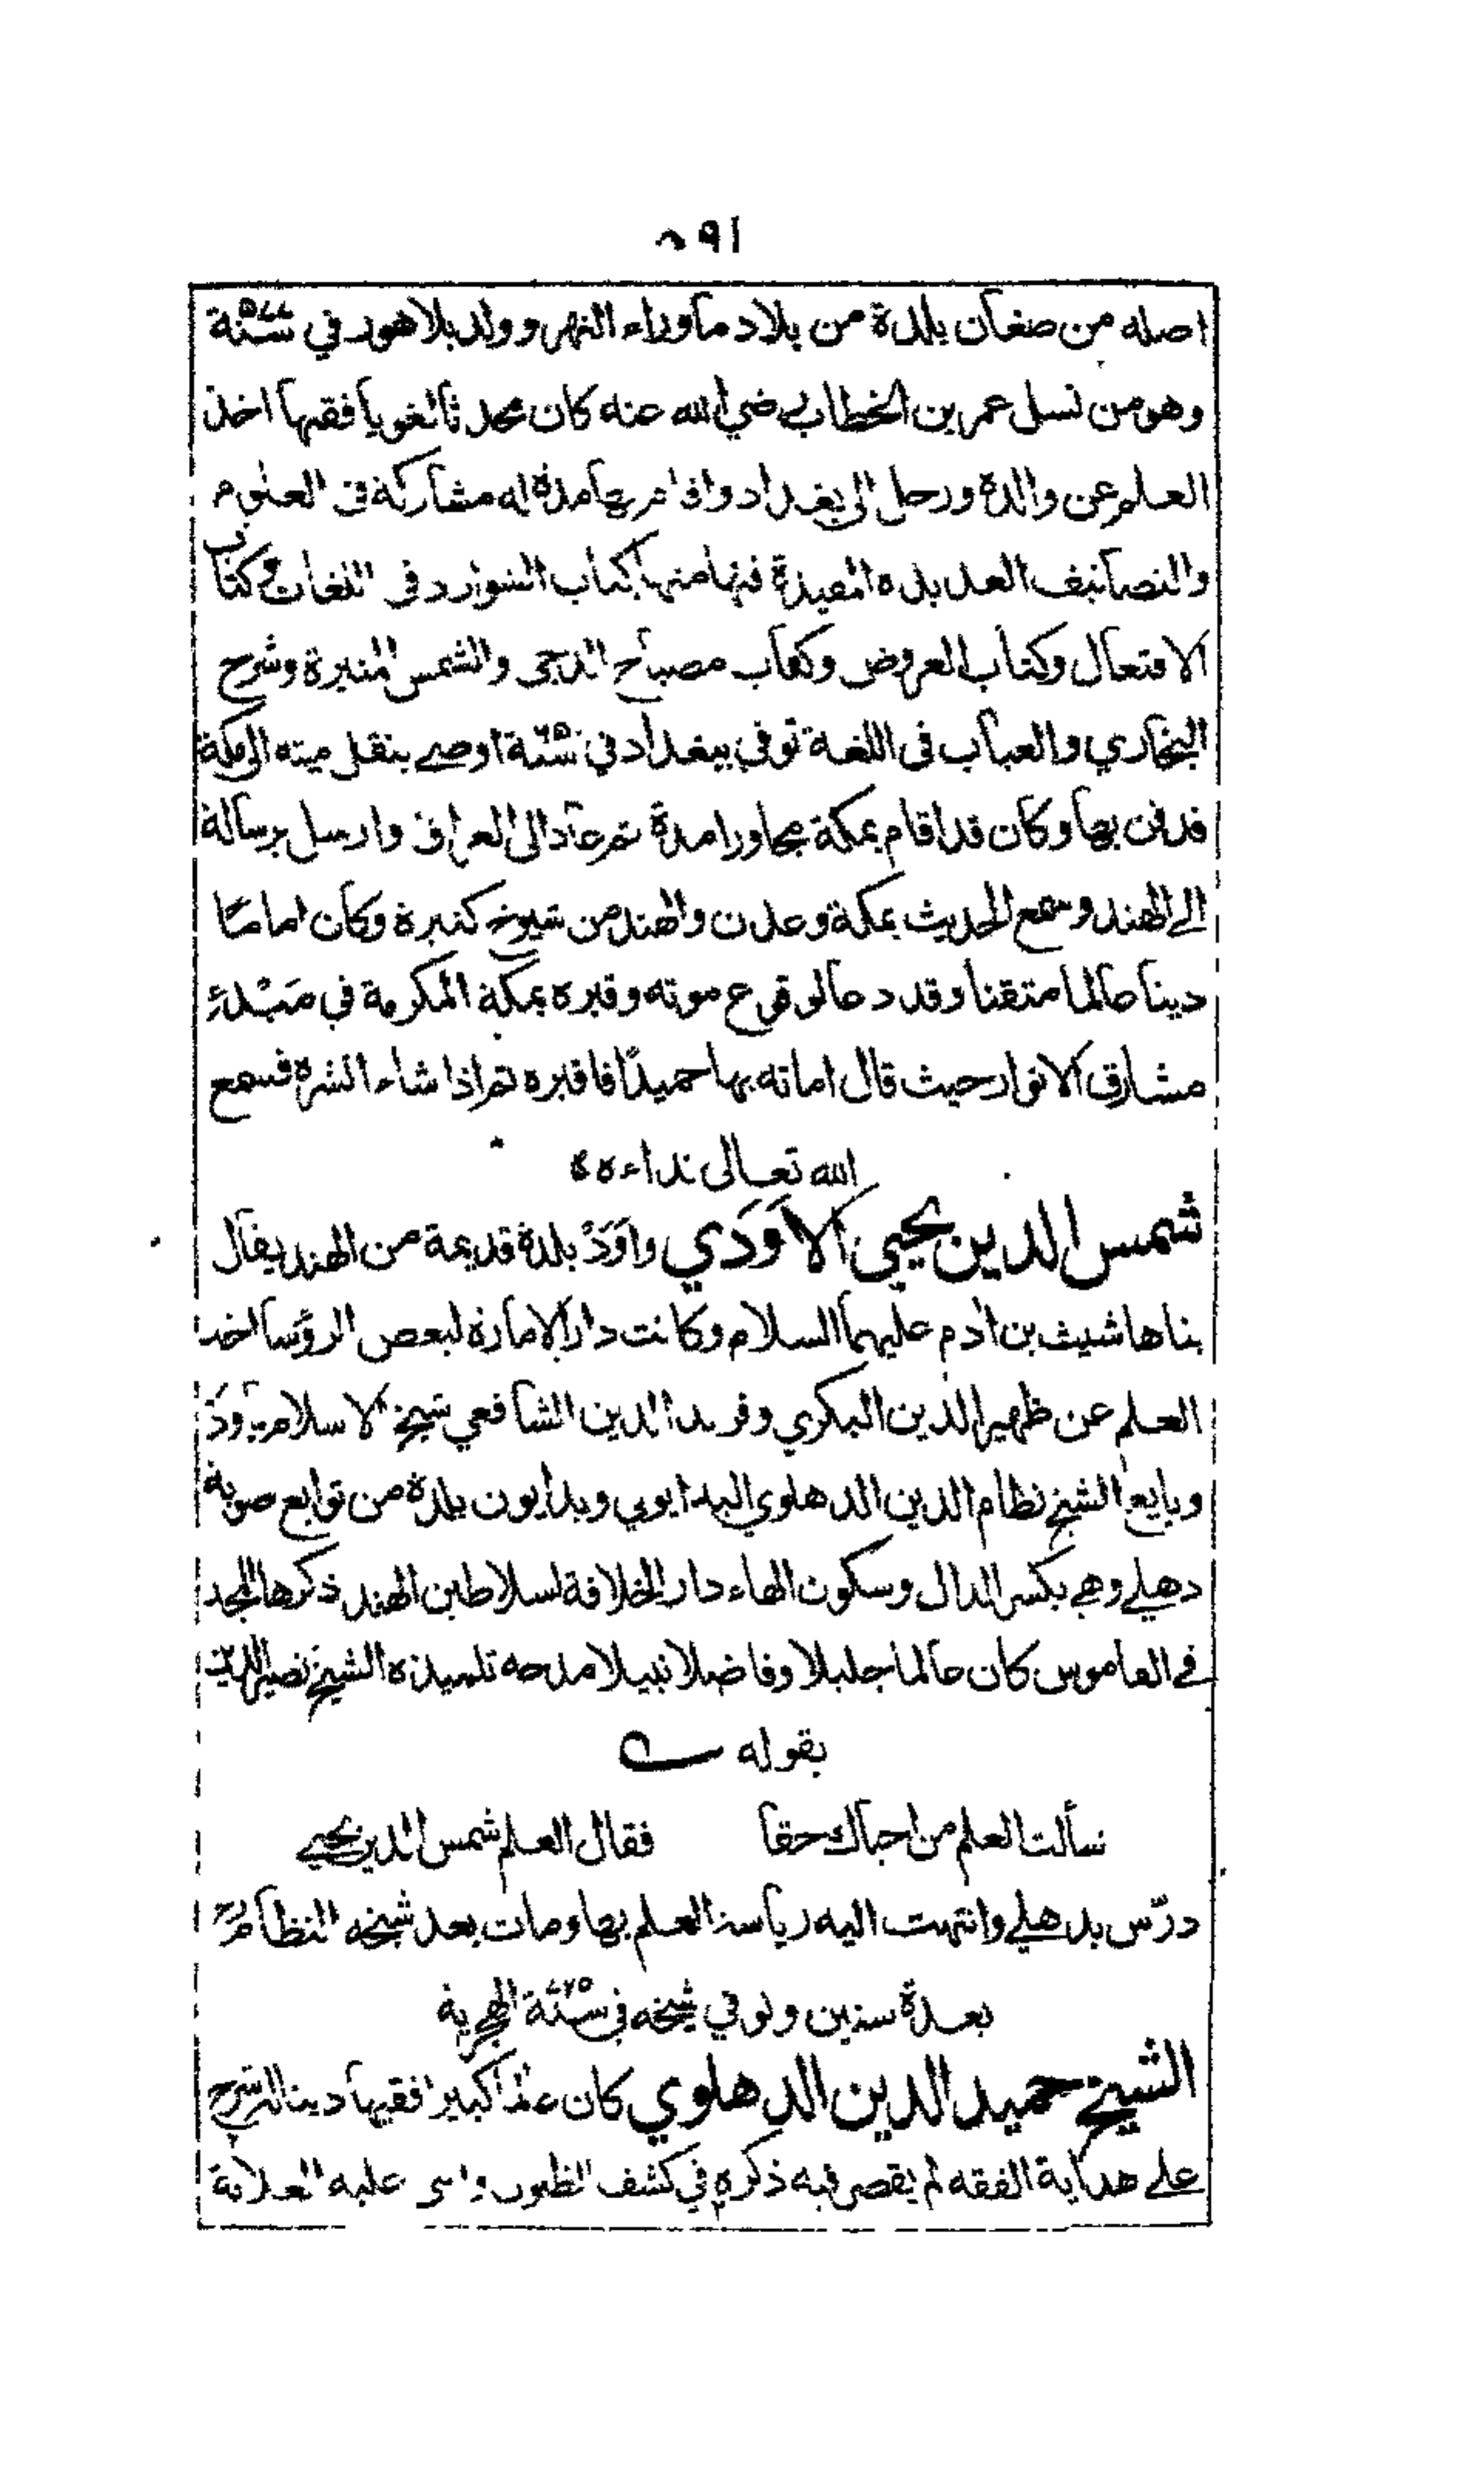 ٨٩١
اصله من صغان بلدة من بلاد ماوراء النهر وولد بلاهور في سنة ٥٧٧
وهو من نسل عمر بن الخطاب رضي الله عنه كان محدثا لغويا فقيها اخذ
العلم عن والده ورحل الى بغداد واقام بها مدة له مشاركة في العلوم
والتصانيف العديدة المفيدة فيها منها كتاب الشوارد في اللغات وكتاب
الافتعال وكتاب العروض وكتاب مصباح الدجى والشمس المنيرة وشرح
البخاري والعباب في اللغة توفي ببغداد في سنة ٦٥٠ اوصى بنقل ميته الى مكة
فدفن بها وكان قد اقام بمكة مجاورا مدة ثم عاد الى العراق وارسل برسالة
الى الهند وسمع الحديث بمكة وعدن والهند من شيوخ كثيرة وكان اماما
دينا عالما متقنا وقد دعا لوقوع موته وقبره بمكة المكرمة في مبدء
مشارق الانوار حيث قال اماته بها حميدًا فاقبره ثم اذا شاء انشره فسمع
الله تعالى نداءه ه
شمس الدين يحيى الاَوَدي واَوَدْ بلدة قديمة من الهند يقال
بناها شيث بن ادم عليهما السلام وكانت دار الامارة لبعض الرؤسا اخذ
العلم عن ظهير الدين البكري وفريد الدين الشافعي شيخ الاسلام باَودَ
وبايع الشيخ نظام الدين الدهلوي البدايوني وبدايون بلدة من توابع صوبة
دهلي وهي بكسر الدال وسكون الهاء دار الخلافة لسلاطين الهند ذكرها المجد
في القاموس كان عالما جليلا وفاضلا نبيلا مدحه تلميذه الشيخ نصير الدين
بقوله
سألت العلم من احياك حقا فقال العلم شمس الدين يحيى
درّس بدهلي وانتهت اليه رياسة العلم بها ومات بعد شيخه النظام
بعدة سنين وتوفي شيخه في سنة ٧٢٥ الهجرية
الشيخ حميد الدين الدهلوي كان عالما كبيرا فقيها دينا له شرح
على هداية الفقه لم يقصر فيه ذكره في كشف الظنون واثنى عليه العلامة